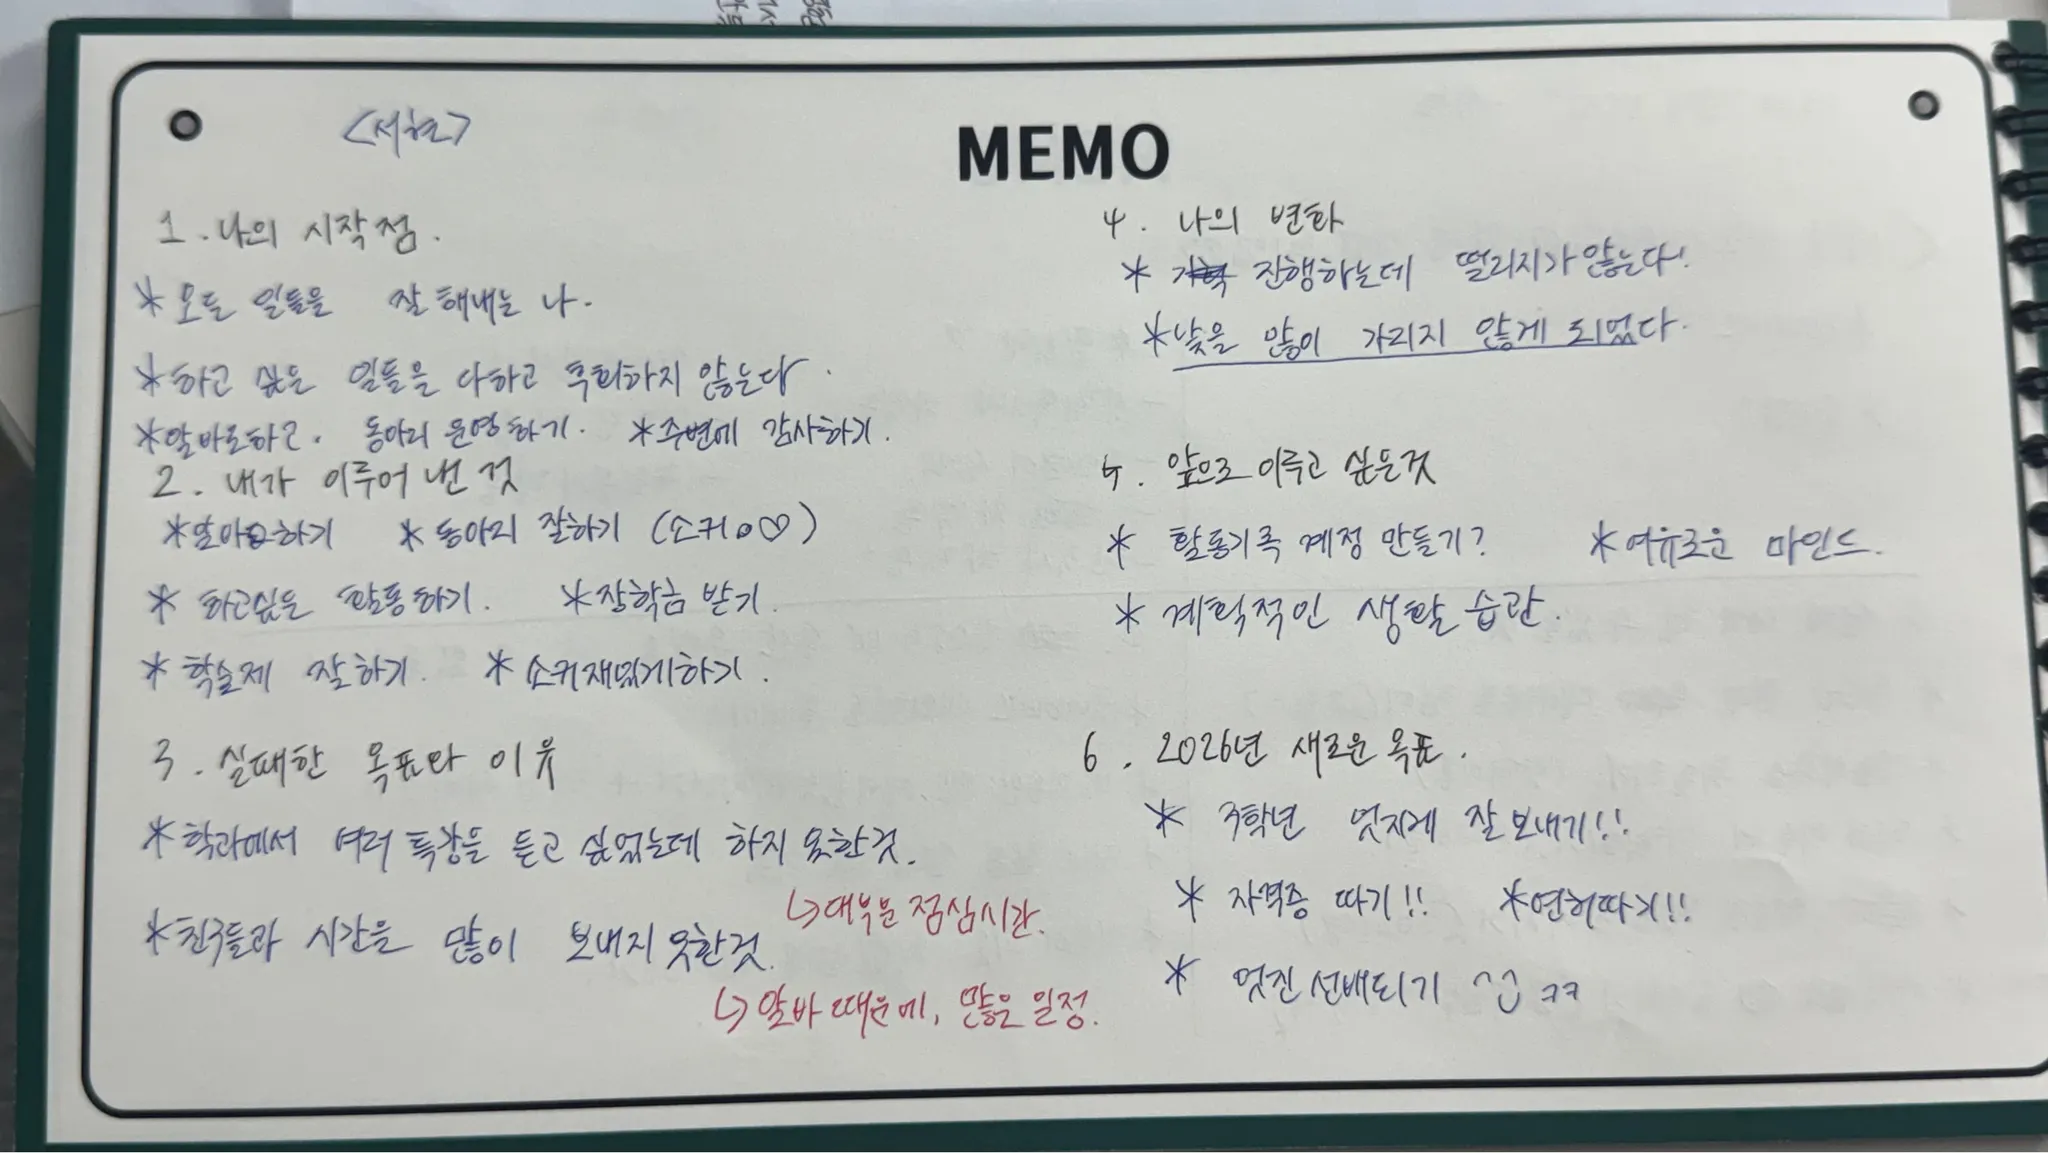 <서현>
MEMO
1. 나의 시작점.
* 모든 일들을 잘 해내는 나.
* 하고 싶은 일들을 다하고 후회하지 않는다.
* 알바로하고. 동아리 운영하기. * 주변에 감사하기.
2. 내가 이루어 낸 것
* 동아리 잘하기 (소커 ♡)
* 하고싶은 활동하기. * 장학금 받기.
* 학술제 잘하기. * 소커재밌게하기.
3. 실패한 목표와 이유
* 학과에서 여러 특강을 듣고 싶었는데 하지 못한것.
↳ 대부분 점심시간.
* 친구들과 시간을 많이 보내지 못한것.
↳ 알바 때문에, 많은 일정.
4. 나의 변화
* 진행하는데 떨리지가 않는다!
* 낯을 많이 가리지 않게 되었다.
5. 앞으로 이루고 싶은것
* 활동기록 계정 만들기? * 여유로운 마인드.
* 계획적인 생활 습관.
6. 2026년 새로운 목표.
* 3학년 멋지게 잘 보내기!!
* 자격증 따기!! * 면허따기!!
* 멋진 선배되기 ^^ ㅋㅋ